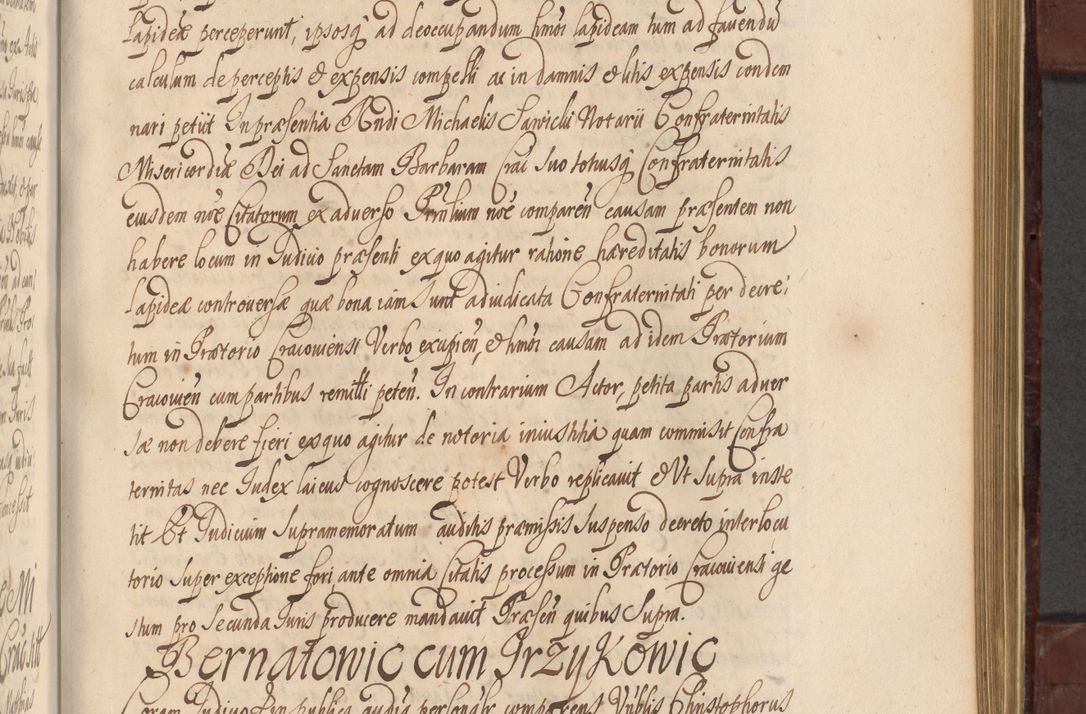 Lapideæ perceperunt, ipsosq́ ad deoccupandum hmõi lapideam tum ad favendũ
calculum de perceptis & expensis compelli ac in damnis & litis expensis condem
nari petiit In præsentia Rndi Michaelis Notarii Confraternitatis
Misericordiæ Dei ad Sanctam Barbaram Crac̃ suo totiusq́ Confraternitatis
eiusdem nõe Citatorum ex adverso nõe comparen̄ causam præsentem non
habere locum in Iudicio præsenti ex quo agitur ratione hæreditatis bonorum
Lapideæ controversæ quæ bona iam sunt adiudicata Confraternitati per decre:
tum in Prætorio Cracoviensi Verbo excipien̄, & hmõi causam ad idem Prætorium
Cracovien̄ cum partibus remitti peten̄. In contrarium Actor, petita partis adver
sæ non debere fieri ex quo agitur de notoria iniustitia quam commisit Confra
ternitas nec Iudex laicus cognoscere potest Verbo replicavit & Vt supra inste
tit Et Iudicium supramemoratum auditis præmissis suspenso decreto interlocu
torio super exceptione fori ante omnia Citatis processum in Prætorio Cracoviensi ge
stum pro secunda Iuris producere mandavit Præsen̄ quibus supra.
Bernatowic cum Grzykowic
Coram Iudicio & in publica audia personalr comparens Nobilis Christophorus